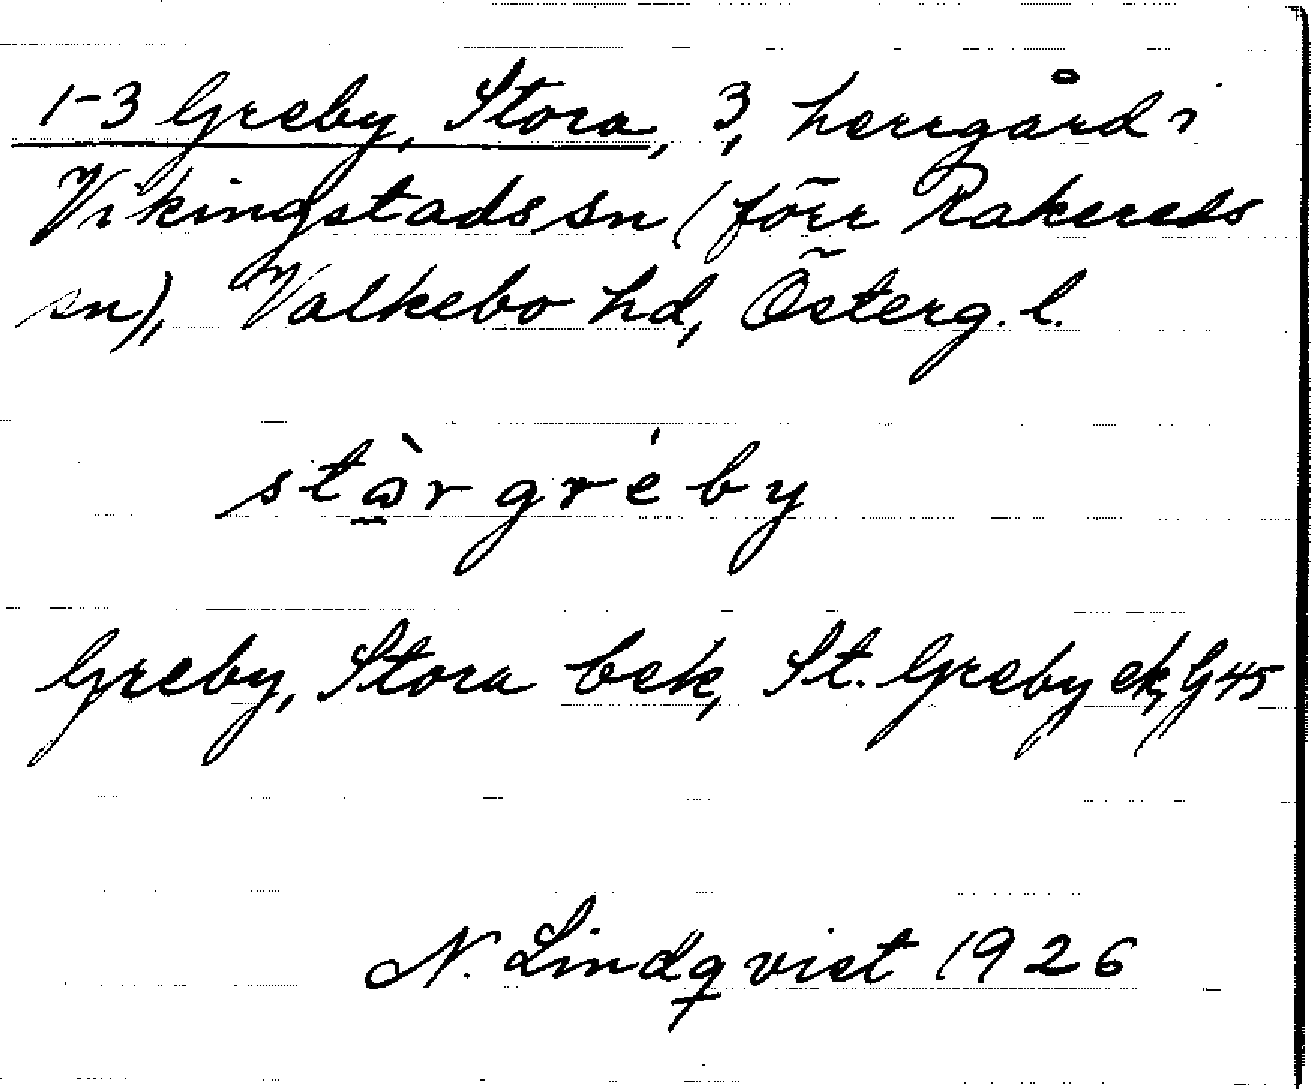 1-3 Greby, Stora, 3, herrgård i
Vikingstads sn (förr Rakereds
sn), Valkebo hd, Österg. l.
stòrgréby
Greby, Stora bek, St. Greby ek, G45
N. Lindqvist 1926